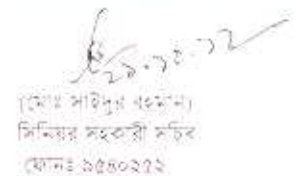 ২১.১০.১২
(মোঃ সাইদুর রহমান)
সিনিয়র সহকারী সচিব
ফোনঃ ৯৫৪০২৫২